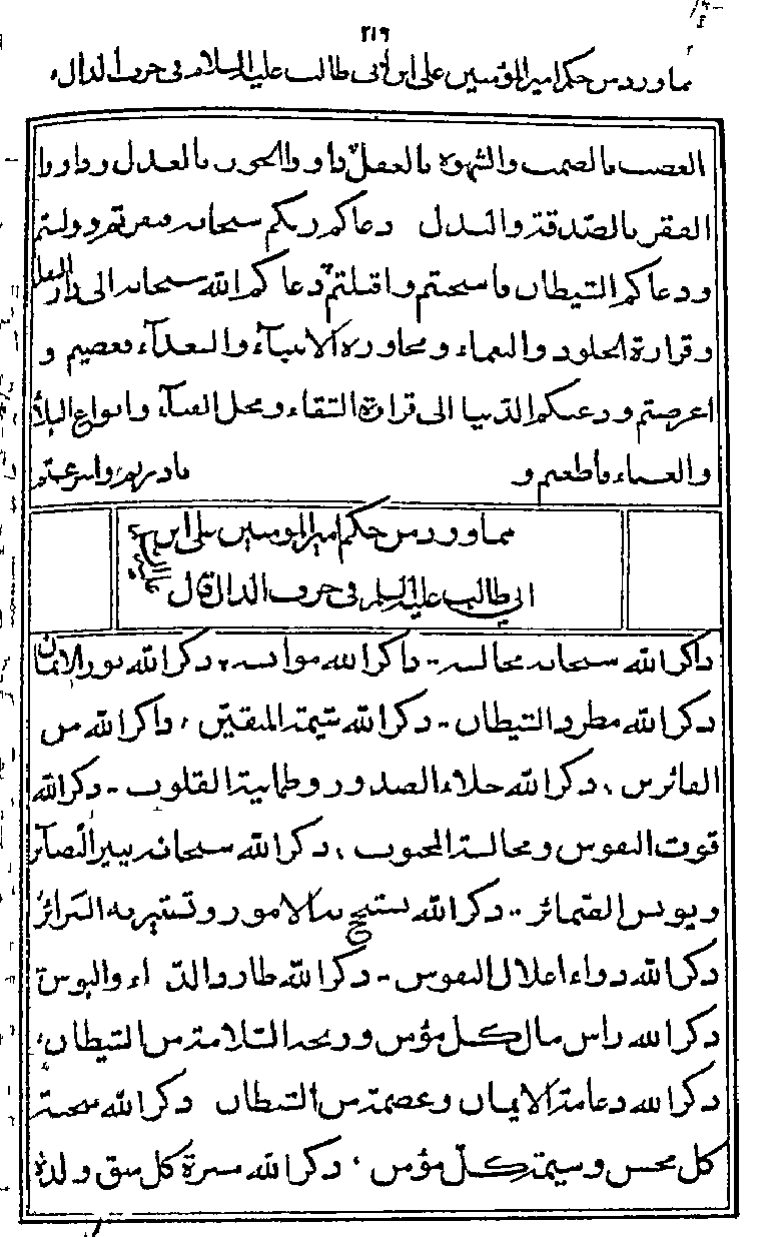 ٢١٩
مما ورد من حكم امير المؤمنين على ابن أبى طالب عليه السلام فى حرف الدال
الغضب بالصمت والشهوة بالعقل داو والجور بالعدل وداووا
الفقر بالصّدقة والبذل دعاكم ربكم سبحانه فنفرتم ووليتم
ودعاكم الشيطان فاستجبتم واقبلتم دعاكم الله سبحانه الى دار البقاء
وقرارة الخلود والنعماء ومجاورة الانبيآء والسعدآء فعصيتم و
اعرضتم ودعتكم الدّنيا الى قرارة الشقاء ومحل الفنآء وانواع البلآء
والعناء فاطعتم و بادرتم واسرعتم
مما ورد من حكم امير المومنين على ابن
ابى طالب عليه السلم فى حرف الذال قال
ذاكر الله سبحانه مجالسه ذاكر الله موانسه ذكر الله نور الايمان
ذكر الله مطرد الشيطان ذكر الله شيمة المتقين ذاكر الله من
الفائزين ذكر الله جلاء الصدور وطمانينة القلوب ذكر الله
قوت النفوس ومجالسة المحبوب ذكر الله سبحانه ينير البصآئر
ويونس الضمائر ذكر الله تستنجح به الامور وتستنير به السّرائر
ذكر الله دواء اعلال النفوس ذكر الله طارد الدّاء والبوس
ذكر الله راس مال كل مؤمن وربحه السّلامة من الشيطان
ذكر الله دعامة الايمان وعصمة من الشيطان ذكر الله سجية
كل محسن وشيمة كل مؤمن ذكر الله مسرة كل متق ولذة